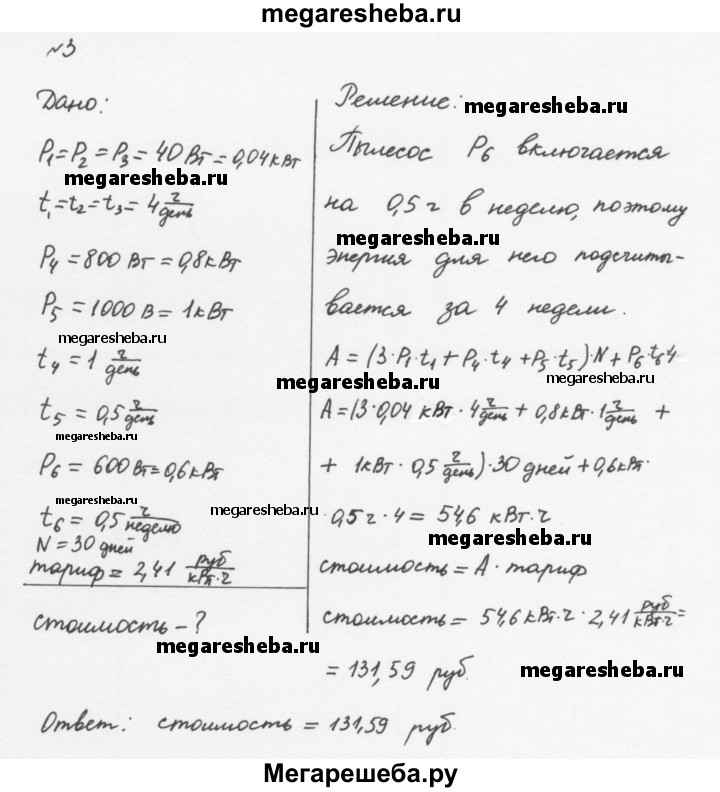 megaresheba.ru
№3
Дано:
P₁=P₂=P₃=40Вт=0,04кВт
megaresheba.ru
t₁=t₂=t₃=4 ч/день
P₄=800 Вт=0,8кВт
P₅=1000 В=1кВт
megaresheba.ru
t₄=1 ч/день
t₅=0,5 ч/день
megaresheba.ru
P₆=600Вт=0,6кВт
megaresheba.ru
t₆=0,5 ч/неделю
N=30 дней
тариф=2,41 руб/кВт·ч
стоимость-?
megaresheba.ru
Решение:
megaresheba.ru
Пылесос P₆ включается
на 0,5 г в неделю, поэтому
megaresheba.ru
энергия для него подсчиты-
вается за 4 недели.
A=(3·P₁·t₁+P₄·t₄+P₅·t₅)·N+P₆t₆4
megaresheba.ru
megaresheba.ru
A=(3·0,04 кВт·4 ч/день+0,8кВт·1 ч/день +
+ 1кВт·0,5 г/день)·30 дней+0,6кВт·
·0,5 г·4=54,6 кВт·ч
megaresheba.ru
стоимость=A·тариф
стоимость=54,6кВт·ч·2,41 руб/кВт·ч=
=131,59 руб.
megaresheba.ru
Ответ: стоимость=131,59 руб.
megaresheba.ru
Мегарешеба.ру